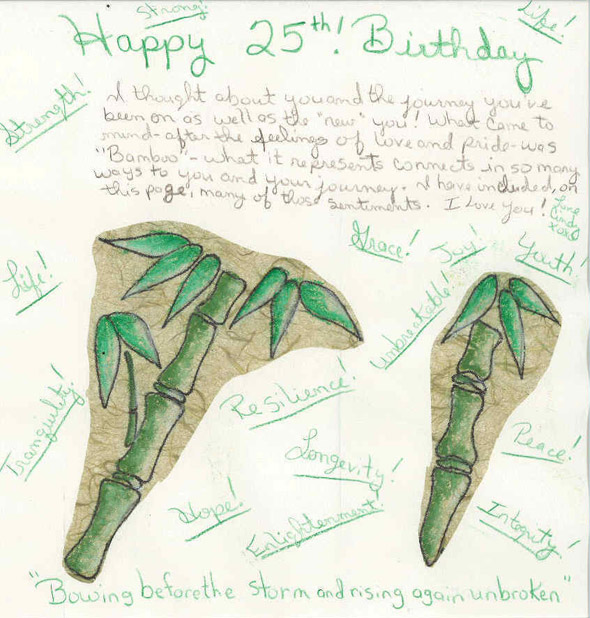 Strong!
Life!
Happy 25th! Birthday
Strength!
I thought about you and the journey you've
been on as well as the "new" you! What came to
mind - after the feelings of love and pride - was
"Bamboo" - what it represents connects in so many
ways to you and your journey. I have included, on
this page, many of those sentiments. I Love You!
Cindy
xoxo
Grace!
Joy!
Youth!
Life!
Unbreakable!
Tranquility!
Resilience!
Longevity!
Peace!
Hope!
Enlightenment!
Integrity!
"Bowing before the storm and rising again unbroken"